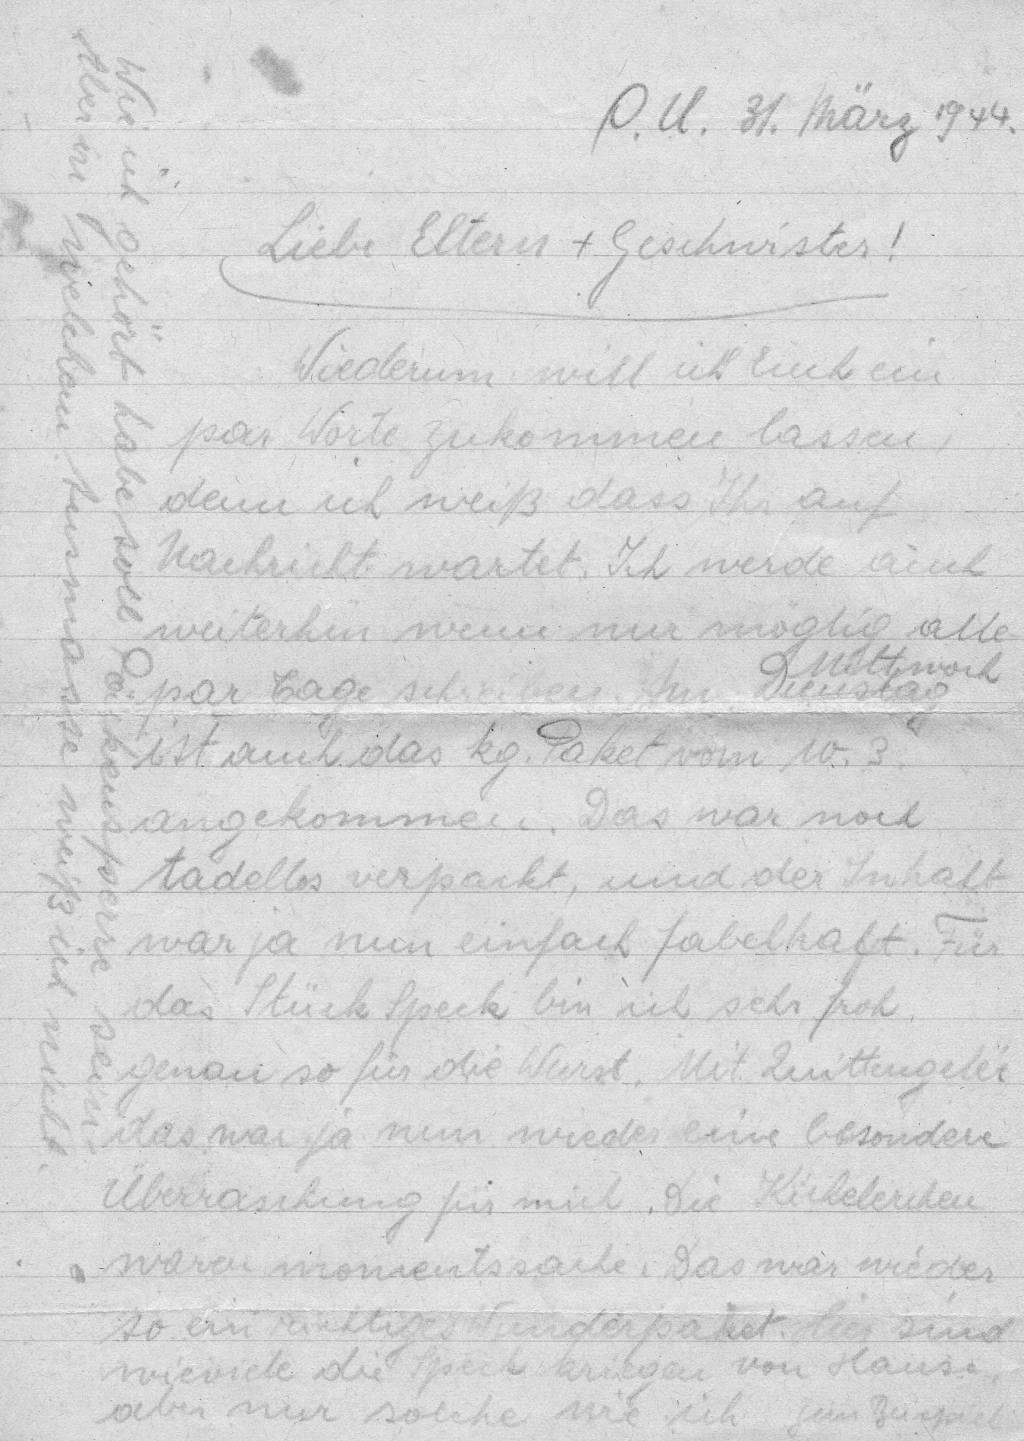 O.U. 31. März 1944.
Liebe Eltern + Geschwister!
Wiederum will ich Euch ein
par Worte zukommen lassen,
denn ich weiß dass Ihr auf
Nachricht wartet. Ich werde auch
weiterhin wenn nur möglig alle
par Tage schreiben. Am Dienstag Mittwoch
ist auch das kg. Paket vom 10.3.
angekommen. Das war noch
tadellos verpackt, und der Inhalt
war ja nun einfach fabelhaft. Für
das Stück Speck bin ich sehr froh,
genau so für die Wurst. Mit Quittengeleé
das war ja nun wieder eine besondere
Überraschung für mich. Die
waren momentssache. Das war wieder
so ein richtiges Wunderpaket. Hier sind
wieviele die Speck kriegen von Hause,
aber nur solche wie ich zum Beispiel
Wie ich gehört habe soll Päckensperre sein.
Aber in welchem Ausmasse weiß ich nicht.